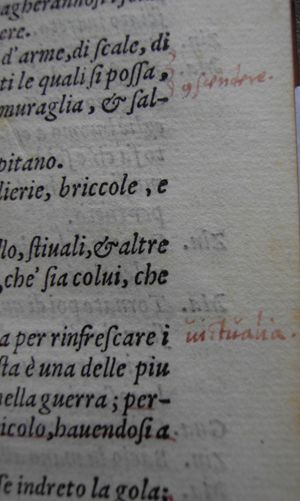 agherannosi
ere.
d'arme, di scale, di
ti le quali si possa,
muraglia, & sal-
pitano.
lierie, briccole, e
llo, stiuali, & altre
, che' sia colui, che
a per rinfrescare i
sta è una delle piu
nella guerra; per-
icolo, hauendosi a
se indreto la gola:
uictualia.